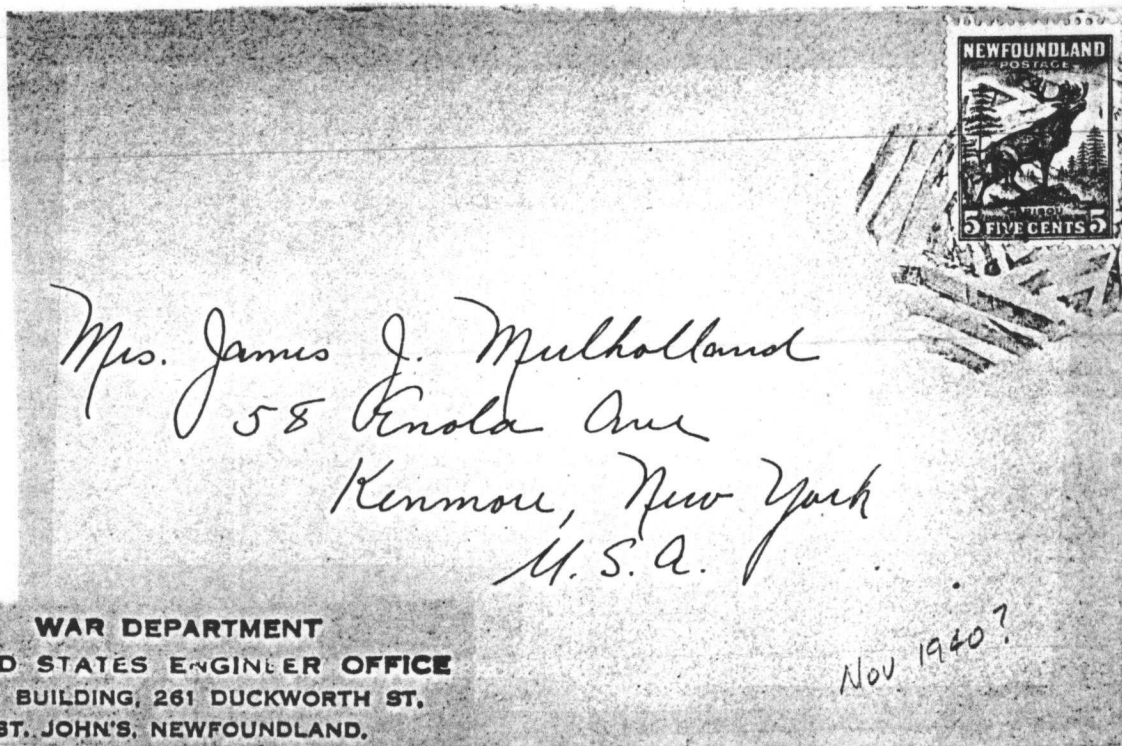 NEWFOUNDLAND
POSTAGE
CARIBOU
5 FIVE CENTS 5
Mrs. James J. Mulholland
58 Enola Ave
Kenmore, New York
U.S.A.
Nov 1940?
WAR DEPARTMENT
D STATES ENGINEER OFFICE
BUILDING, 261 DUCKWORTH ST.
ST. JOHN'S, NEWFOUNDLAND.